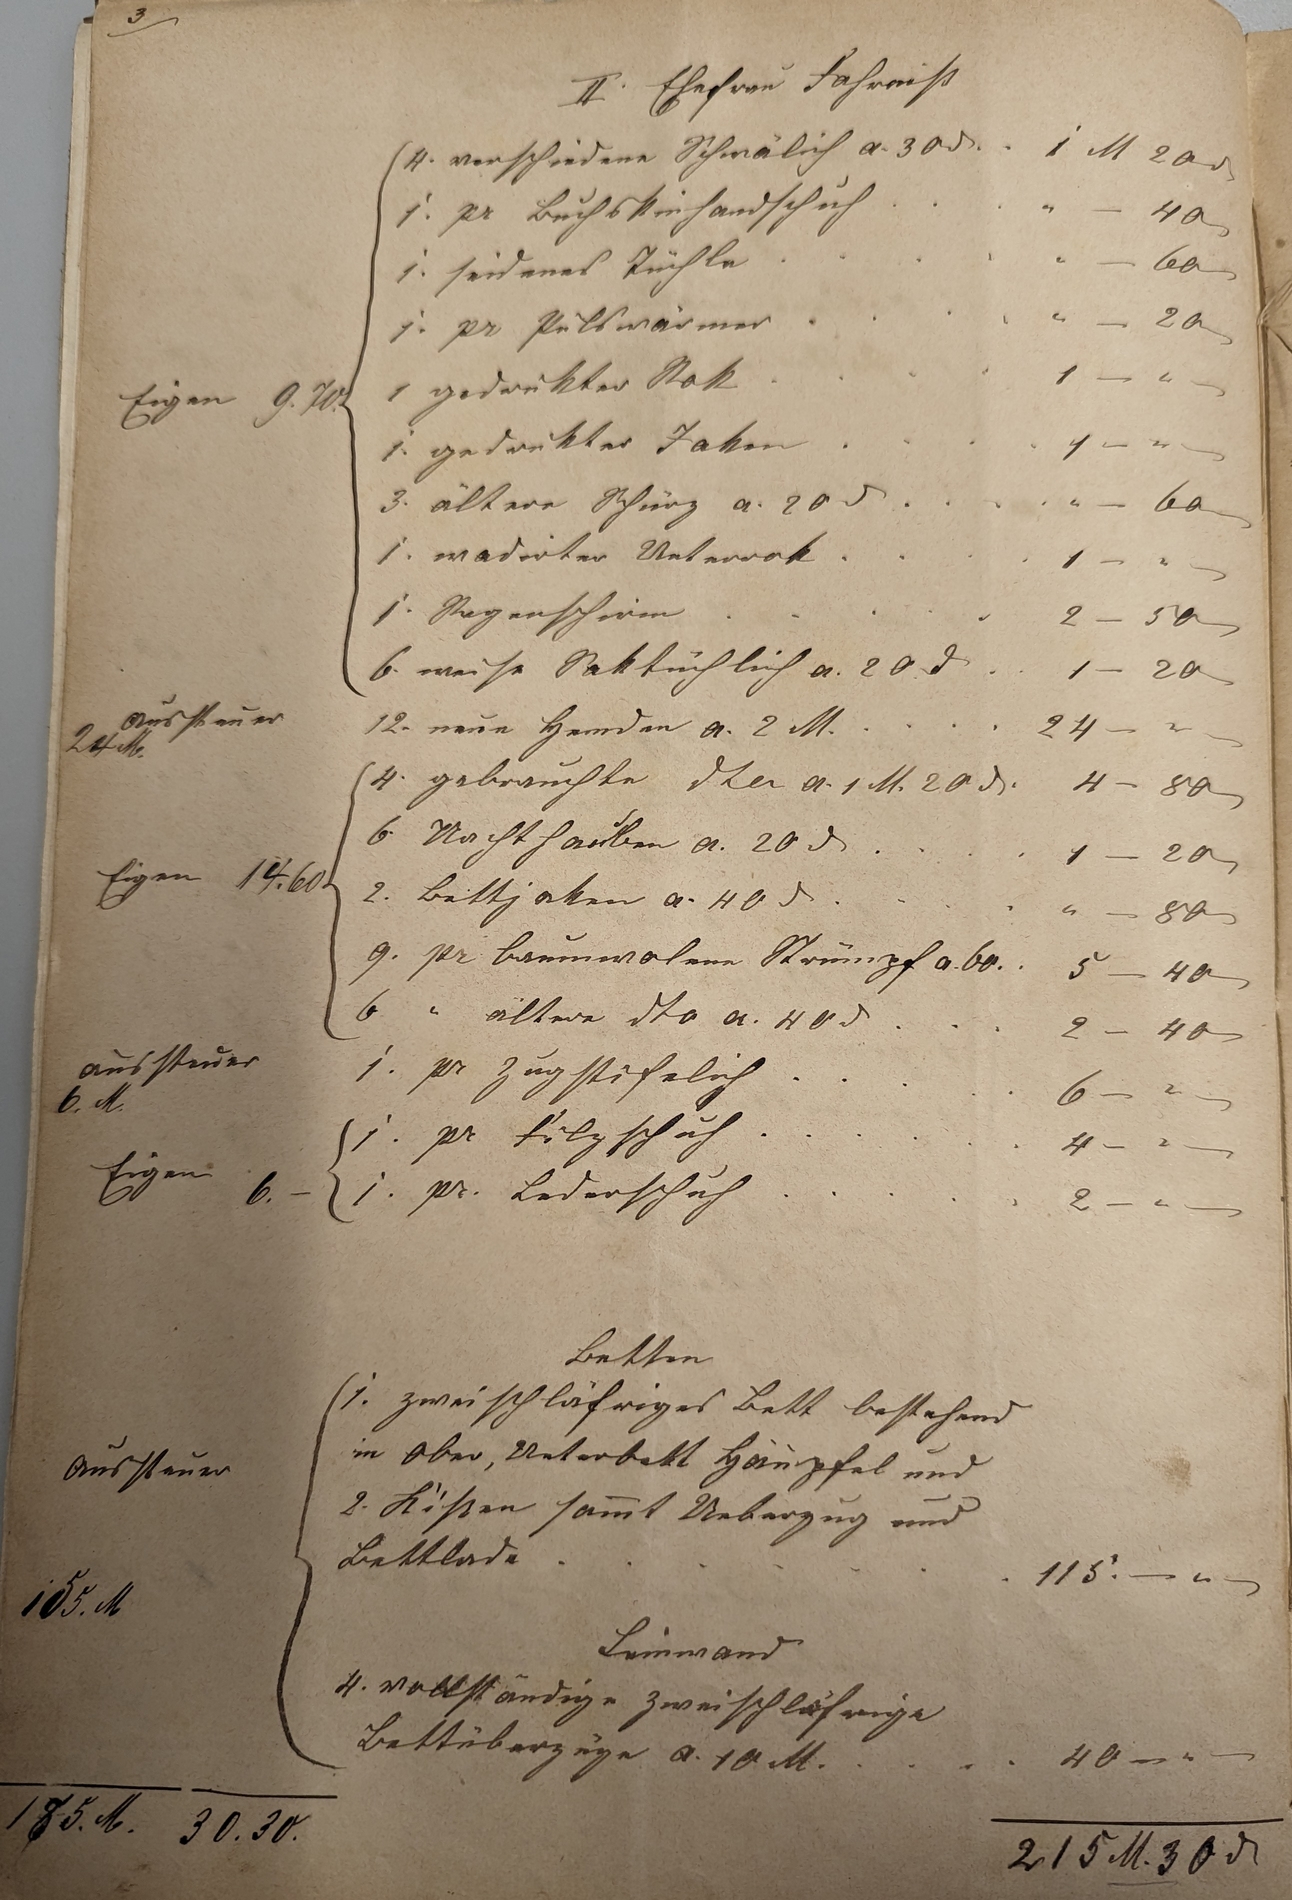 3
II. Ehefrau Fahrniß
4. verschiedene Schwälich a. 30 d. . 1 M 20 d
1. pr Buchskinhandschuh . . . " — 40
1. seidenes Tüchle . . . . " — 60
1. pr Pulswärmer . . . . " — 20
1 gedrukter Rok . . . . 1 — "
Eigen 9.70.
1. gedrukter Jaken . . . . 1 — "
3. ältere Schürz a. 20 d . . . . " — 60
1. Unterrok . . . 1 — "
1. Regenschirm . . . . 2 — 50
6. weise Saktüchlich a. 20 d . . 1 — 20
Aussteuer
24 M.
12. neue Hemden a. 2 M. . . . . 24 — "
4. gebrauchte dter a. 1 M. 20 d. 4 — 80
6 Nachthauben a. 20 d . . . . 1 — 20
Eigen 14.60
2. Bettjaken a. 40 d . . . . " — 80
9. pr baumwolene Strümpf a. 60. . 5 — 40
6 " ältere dto a. 40 d . . . 2 — 40
Aussteuer
6. M.
1. pr Zugstifelich . . . . 6 — "
1. pr Filzschuh . . . . . 4 — "
Eigen 6. —
1. pr. Lederschuh . . . . . 2 — "
Betten
1. zweischläfriges Bett bestehend
in Ober, Unterbett Häupfel und
Aussteuer
2. Kißen sammt Ueberzug und
Bettlade . . . . . . . 115. — "
155. M
Leinwand
4. vollständige zweischläfrige
Bettüberzüge a. 10 M. . . . . 40 — "
185. M. 30.30.
215 M. 30 d